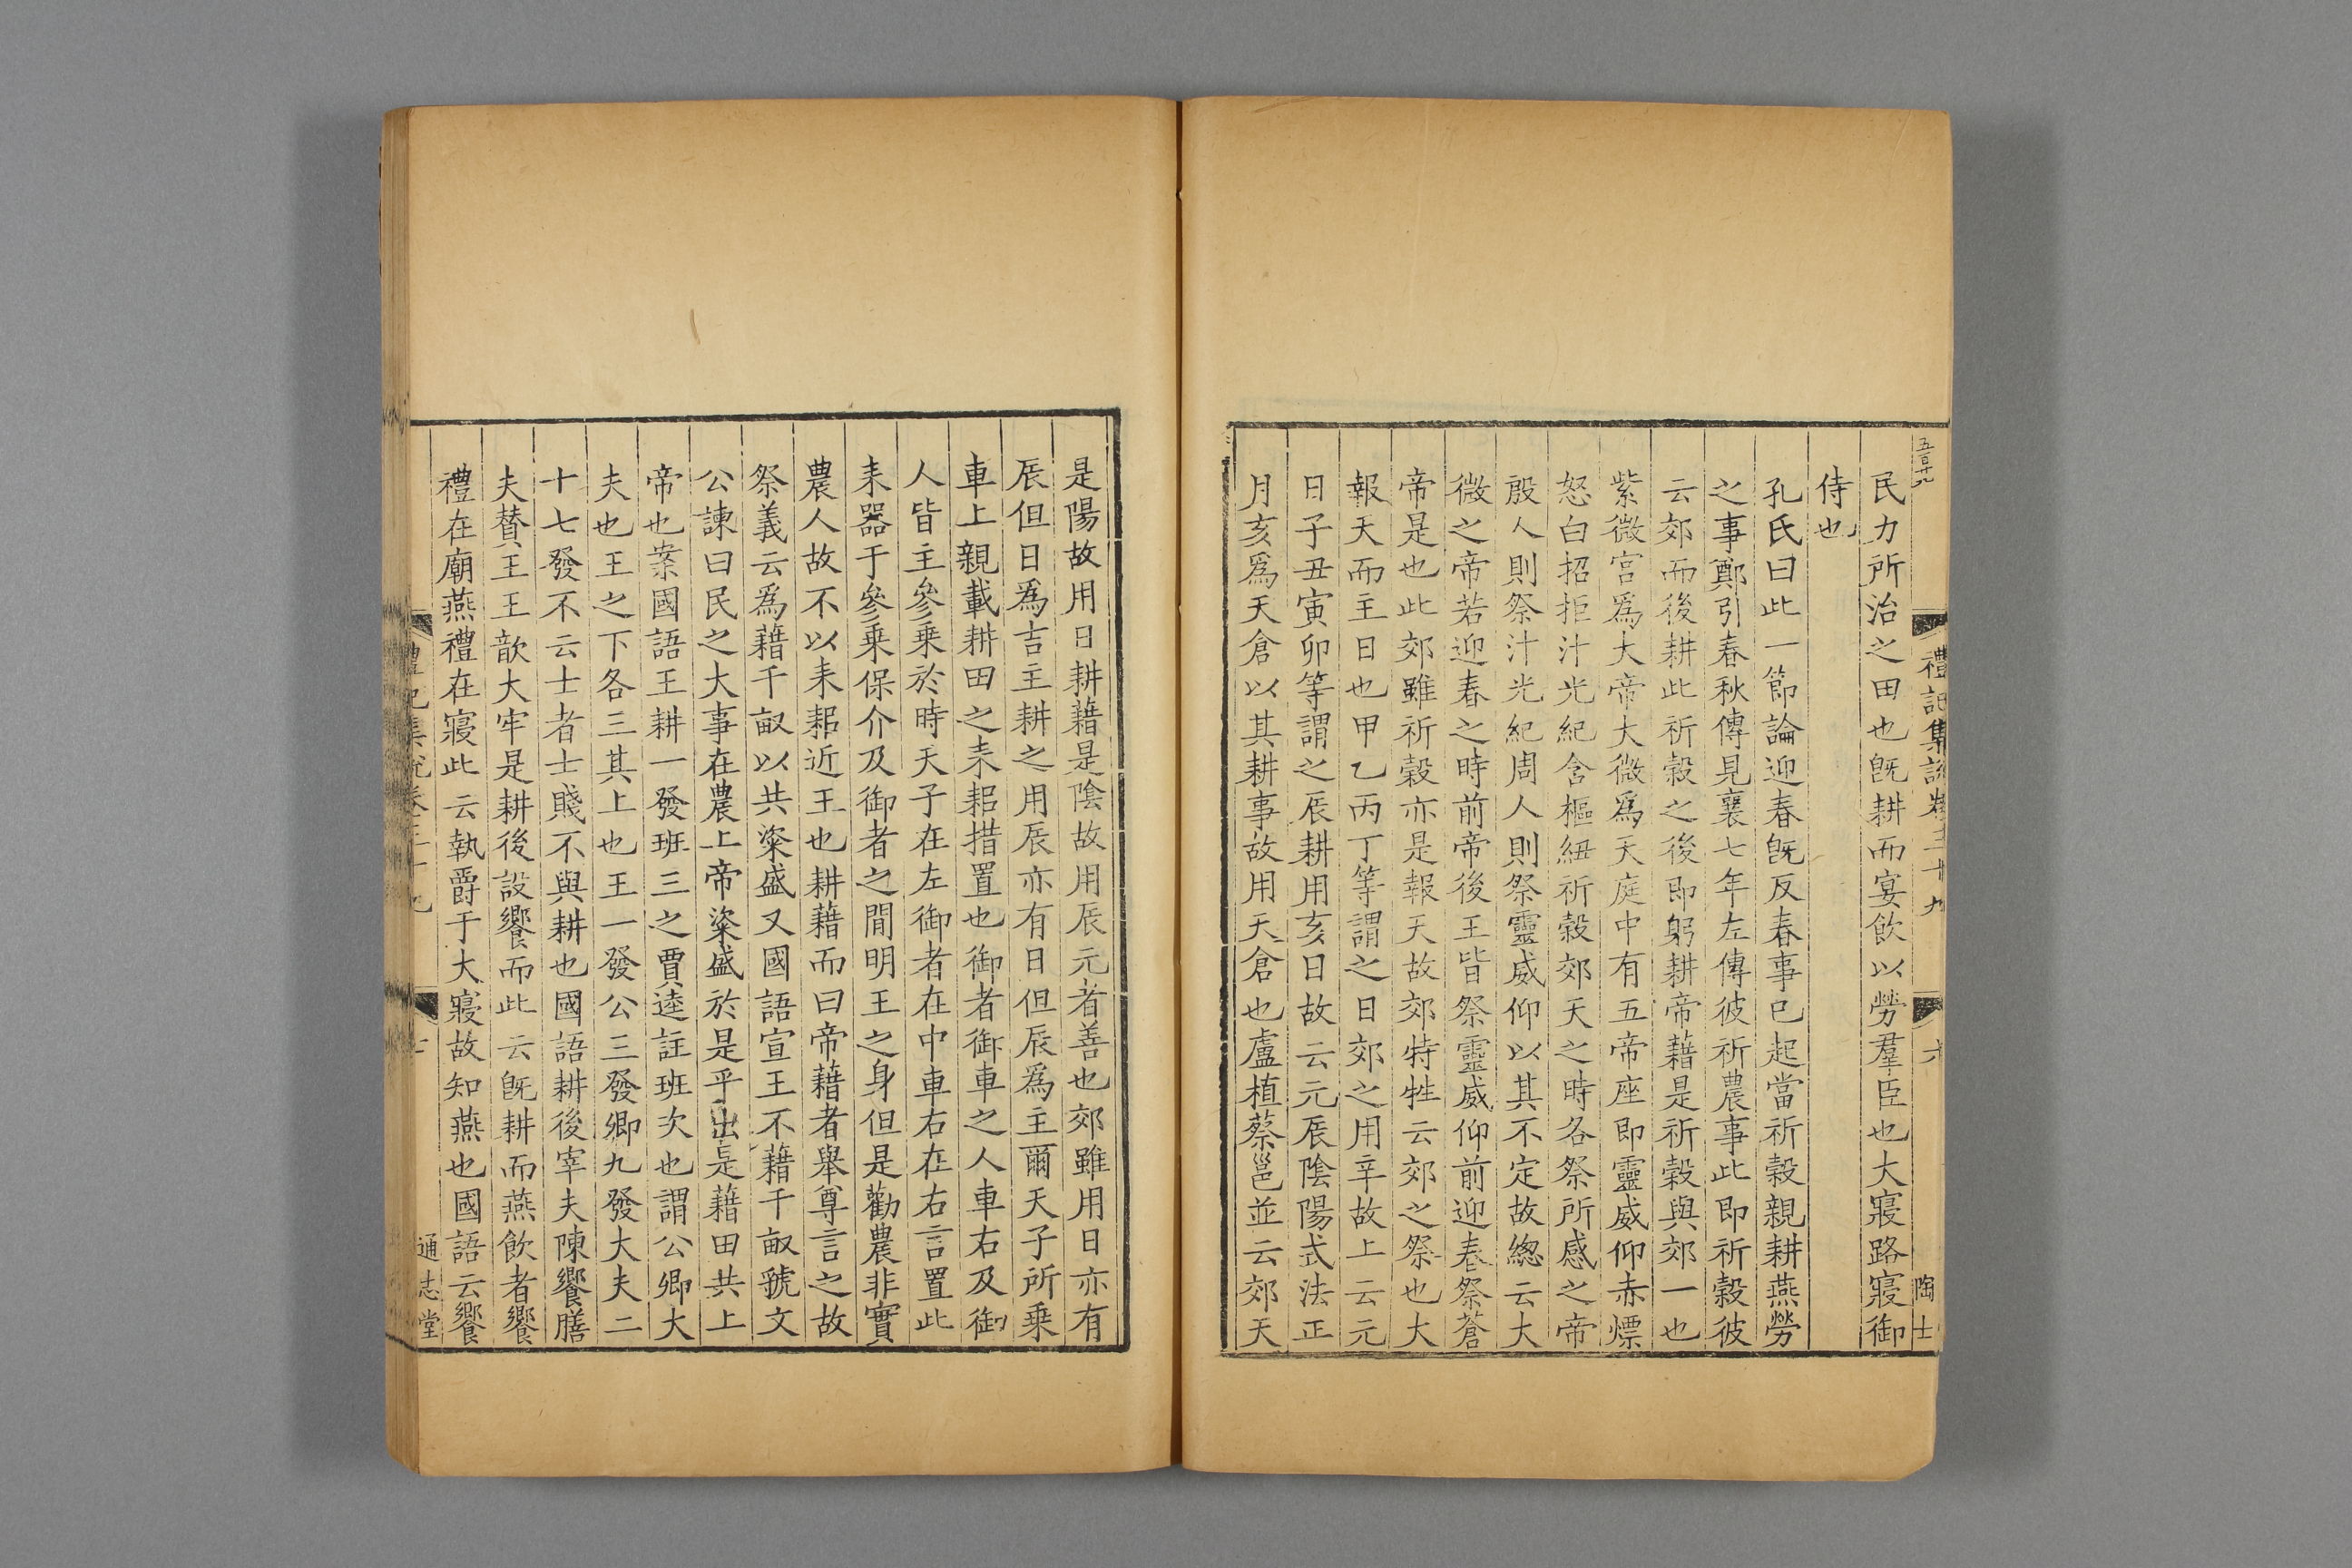 五百十九
禮記集說卷三十九
六
陶士
民力所治之田也旣耕而宴飲以勞羣臣也大寢路寢御
侍也
孔氏曰此一節論迎春旣反春事已起當祈穀親耕燕勞
之事鄭引春秋傳見襄七年左傳彼祈農事此即祈穀彼
云郊而後耕此祈穀之後即躬耕帝藉是祈穀與郊一也
紫微宮爲大帝大微爲天庭中有五帝座即靈威仰赤熛
怒白招拒汁光紀含樞紐祈穀郊天之時各祭所感之帝
殷人則祭汁光紀周人則祭靈威仰以其不定故緫云大
微之帝若迎春之時前帝後王皆祭靈威仰前迎春祭蒼
帝是也此郊雖祈穀亦是報天故郊特牲云郊之祭也大
報天而主日也甲乙丙丁等謂之日郊之用辛故上云元
日子丑寅卯等謂之辰耕用亥日故云元辰陰陽式法正
月亥爲天倉以其耕事故用天倉也盧植蔡邕並云郊天
是陽故用日耕藉是陰故用辰元者善也郊雖用日亦有
辰但日爲吉主耕之用辰亦有日但辰爲主爾天子所乗
車上親載耕田之耒耜措置也御者御車之人車右及御
人皆主參乗於時天子在左御者在中車右在右言置此
耒器于參乗保介及御者之間明王之身但是勸農非實
農人故不以耒耜近王也耕藉而曰帝藉者舉尊言之故
祭義云爲藉千畝以共粢盛又國語宣王不藉千畝虢文
公諫曰民之大事在農上帝粢盛於是乎出是藉田共上
帝也案國語王耕一發班三之賈逵註班次也謂公卿大
夫也王之下各三其上也王一發公三發卿九發大夫二
十七發不云士者士賤不與耕也國語耕後宰夫陳饗膳
夫賛王王歆大牢是耕後設饗而此云旣耕而燕飲者饗
禮在廟燕禮在寢此云執爵于大寢故知燕也國語云饗
通志堂